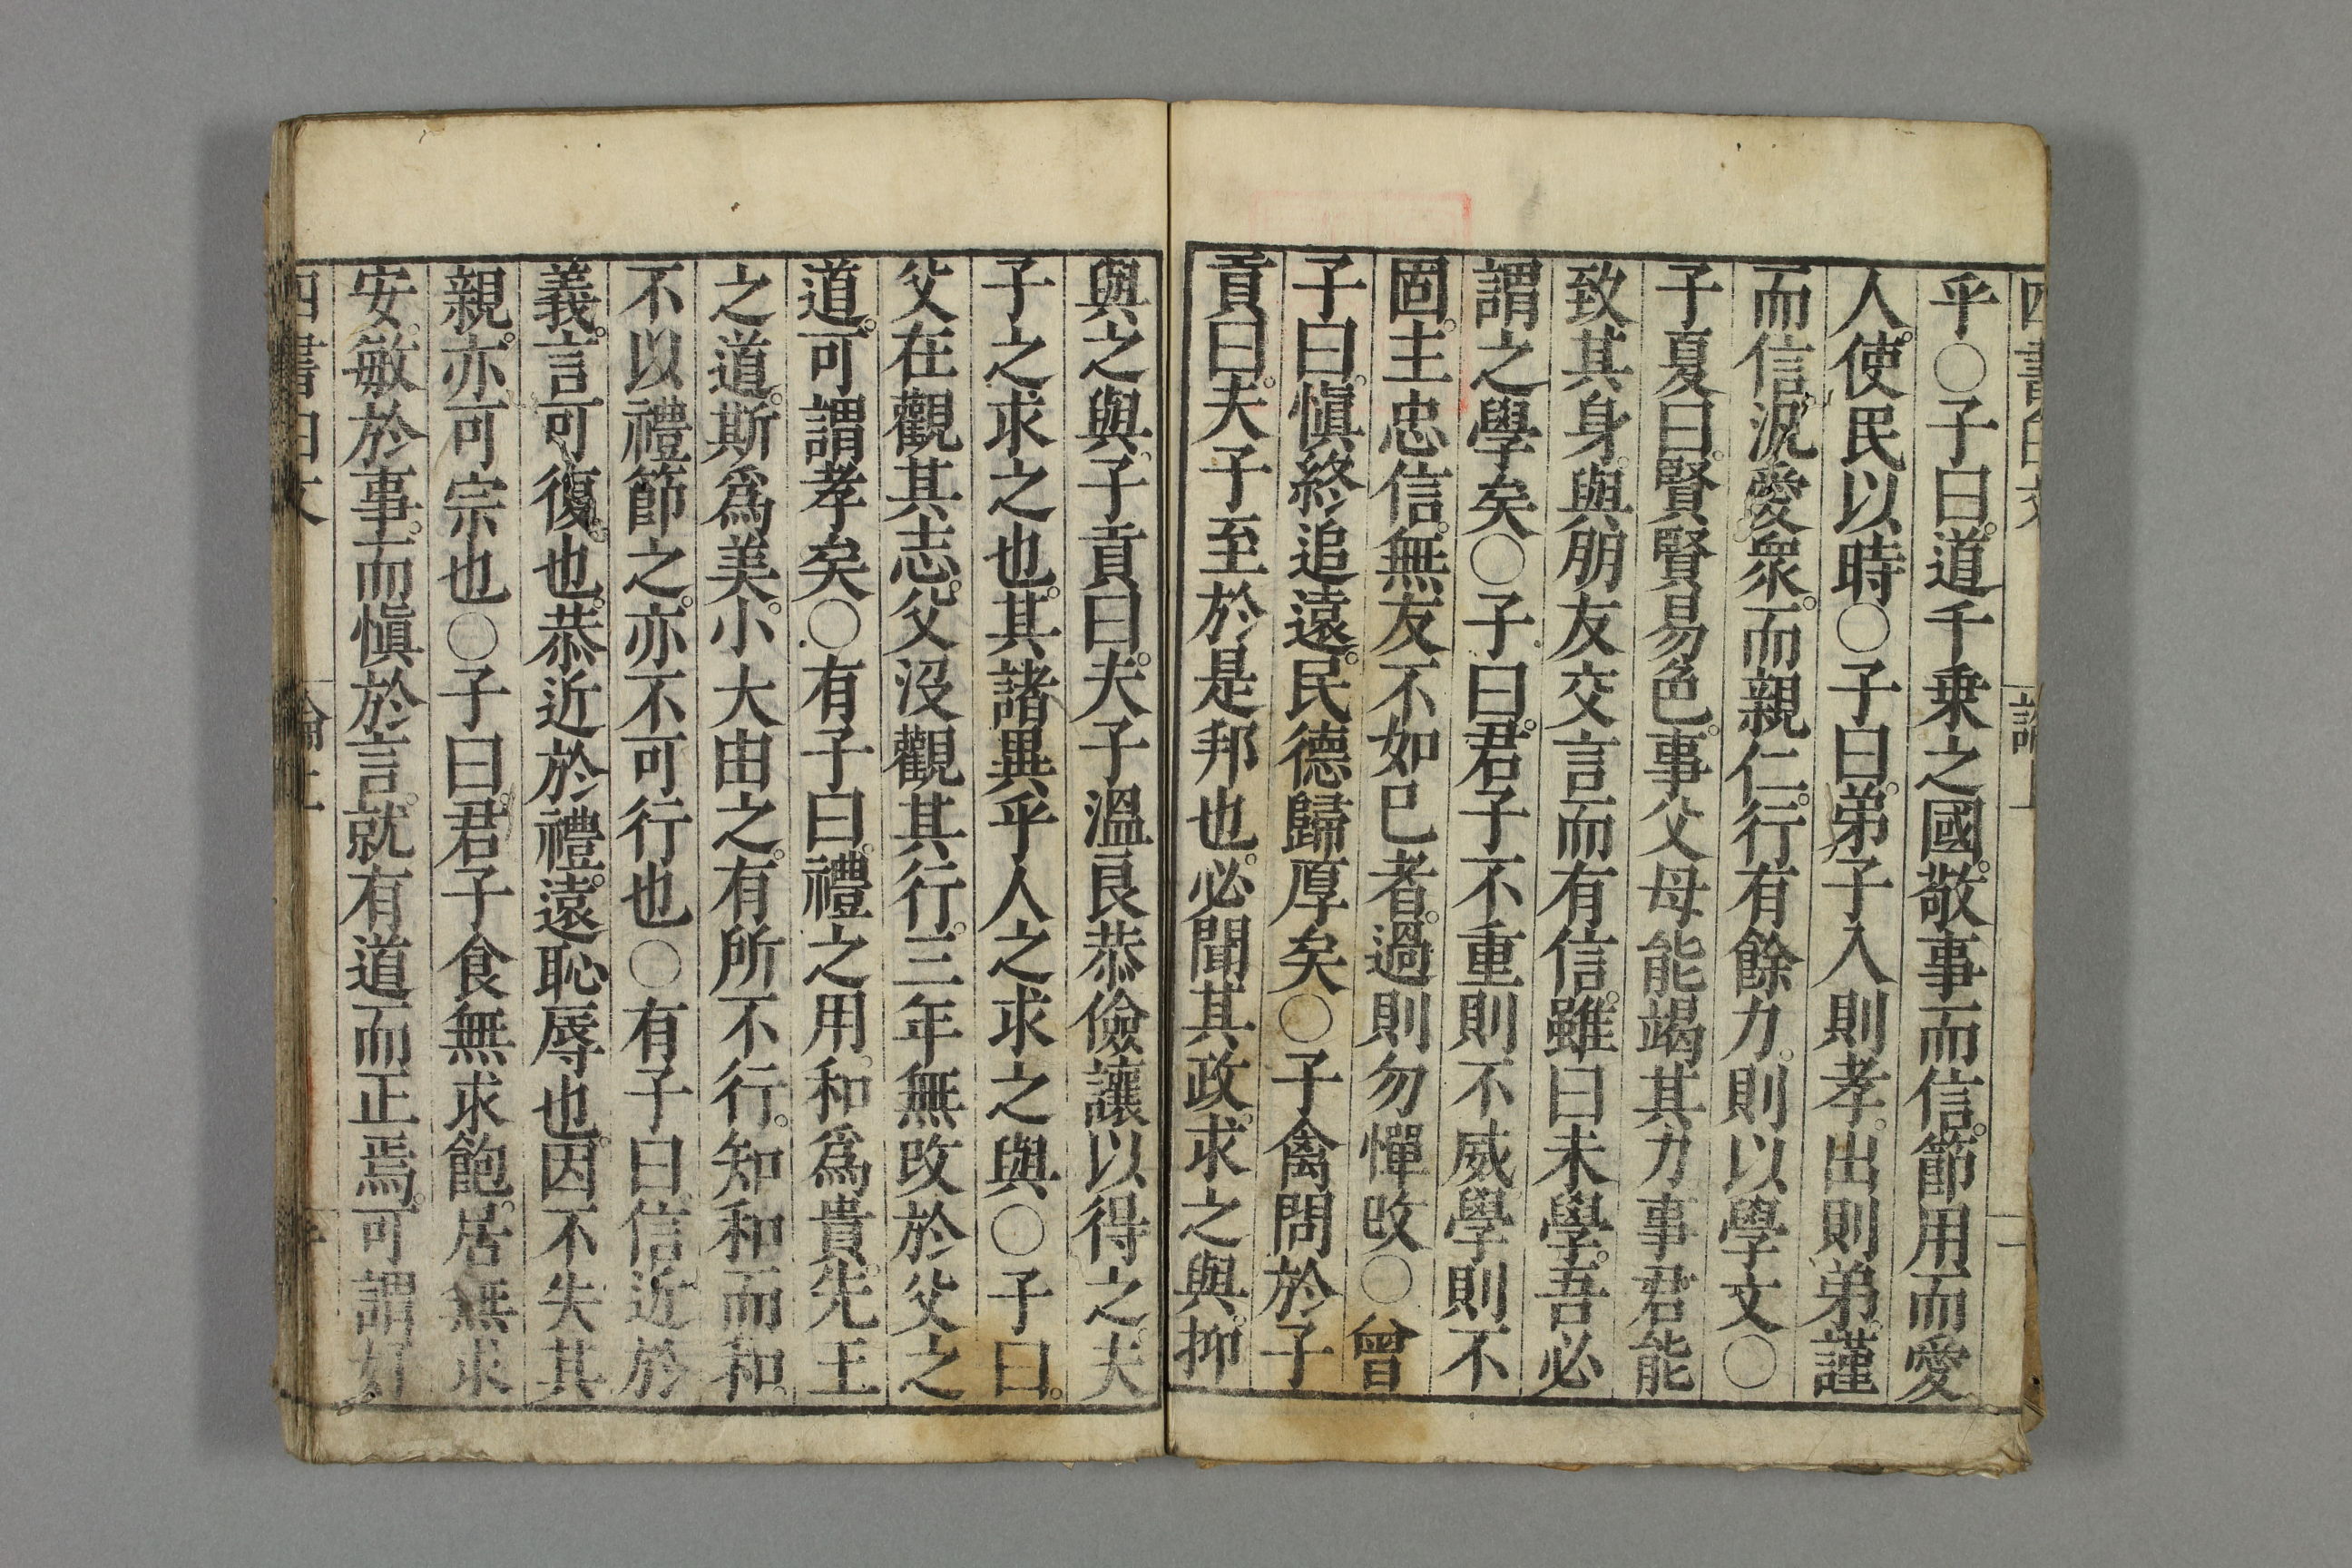 乎○子曰。道千乗之國。敬事而信。節用而愛
人。使民以時○子曰。弟子入則孝。出則弟。謹
而信。汎愛衆。而親仁。行有餘力。則以學文○
子夏曰。賢賢易色。事父母能竭其力事君能
致其身。與朋友交言而有信。雖曰未學。吾必
謂之學矣○子曰。君子不重則不威學則不
固。主忠信。無友不如己者。過則勿憚改○曾
子曰。愼終追遠。民德歸厚矣○子禽問於子
貢曰。夫子至於是邦也。必聞其政。求之與。抑
與之與。子貢曰。夫子溫良恭儉讓以得之。夫
子之求之也。其諸異乎人之求之與○子曰。
父在觀其志。父沒觀其行。三年無改於父之
道。可謂孝矣○有子曰。禮之用。和爲貴。先王
之道。斯爲美。小大由之。有所不行。知和而和。
不以禮節之。亦不可行也○有子曰。信近於
義。言可復。也。恭近於禮。遠恥辱也。因不失其
親。亦可宗也○子曰。君子食無求飽。居無求
安。敏於事。而愼於言。就有道而正焉。可謂好